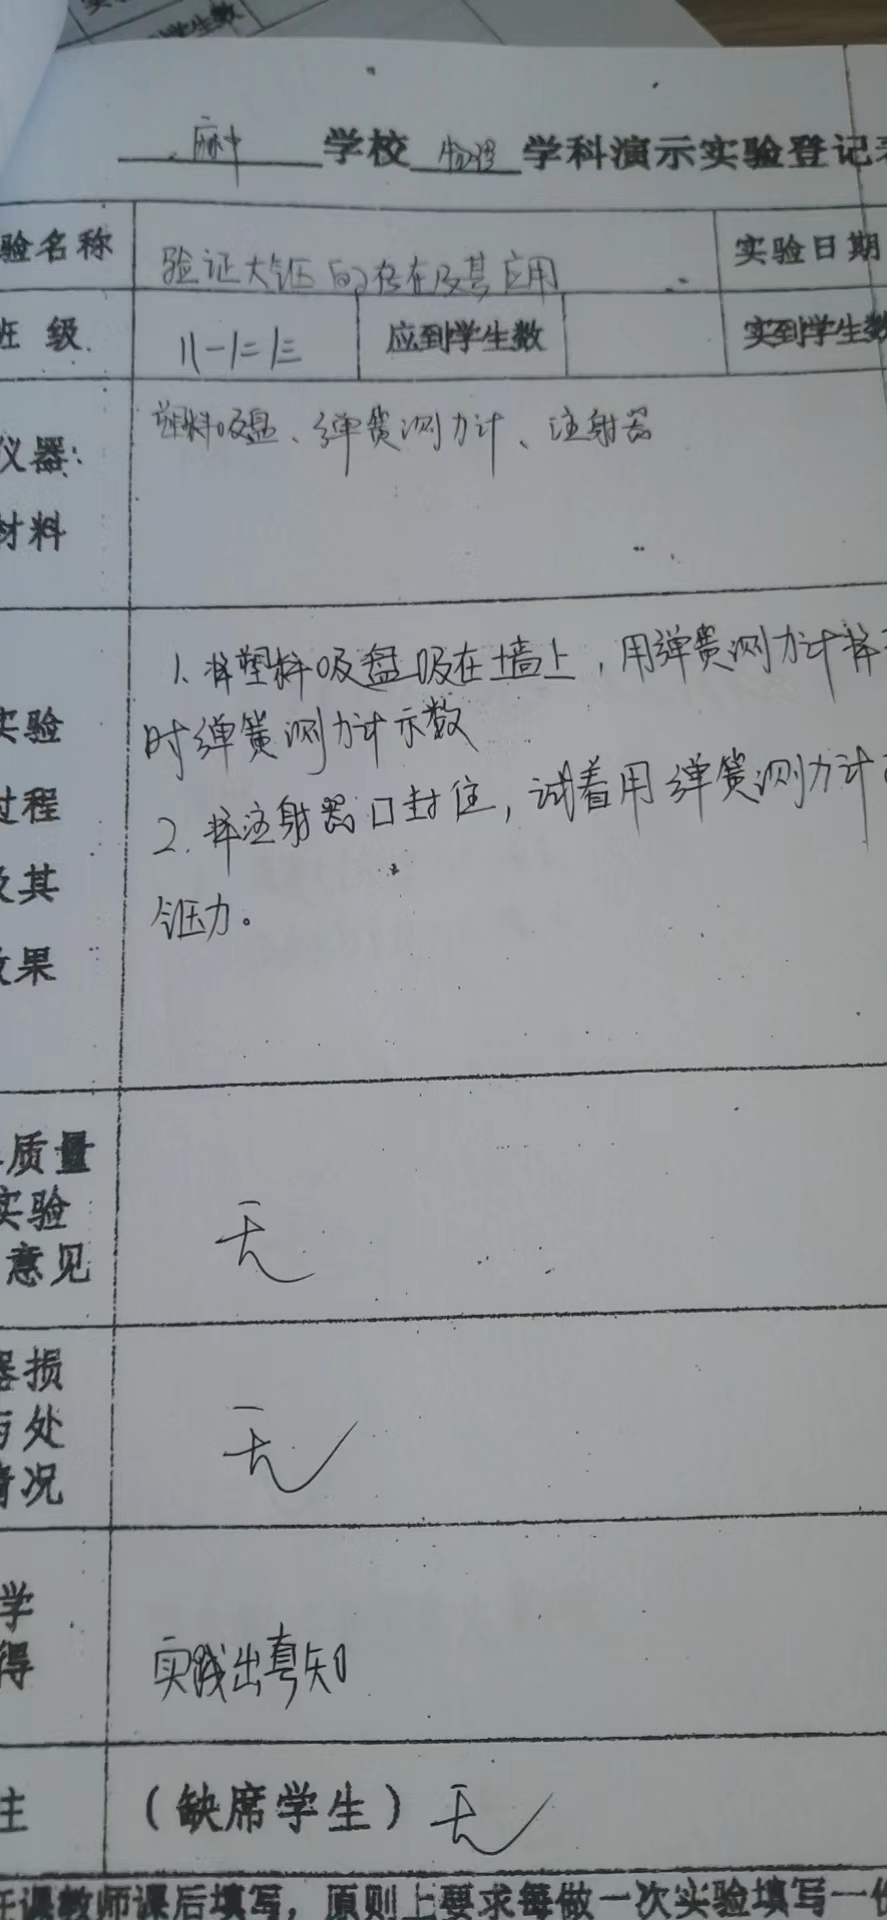 学生数
麻中 学校 物理 学科演示实验登记表
验名称 验证大气压的存在及其应用 实验日期
班 级 八一八二八三 应到学生数 实到学生数
仪器: 塑料吸盘、弹簧测力计、注射器
材料
1.将塑料吸盘吸在墙上，用弹簧测力计将
实验 时弹簧测力计示数
过程 2.将注射器口封住，试着用弹簧测力计
及其 气压力。
效果
质量
实验 无
意见
器损
与处 无
情况
学
得 实践出真知
注 (缺席学生) 无
任课教师课后填写，原则上要求每做一次实验填写一份